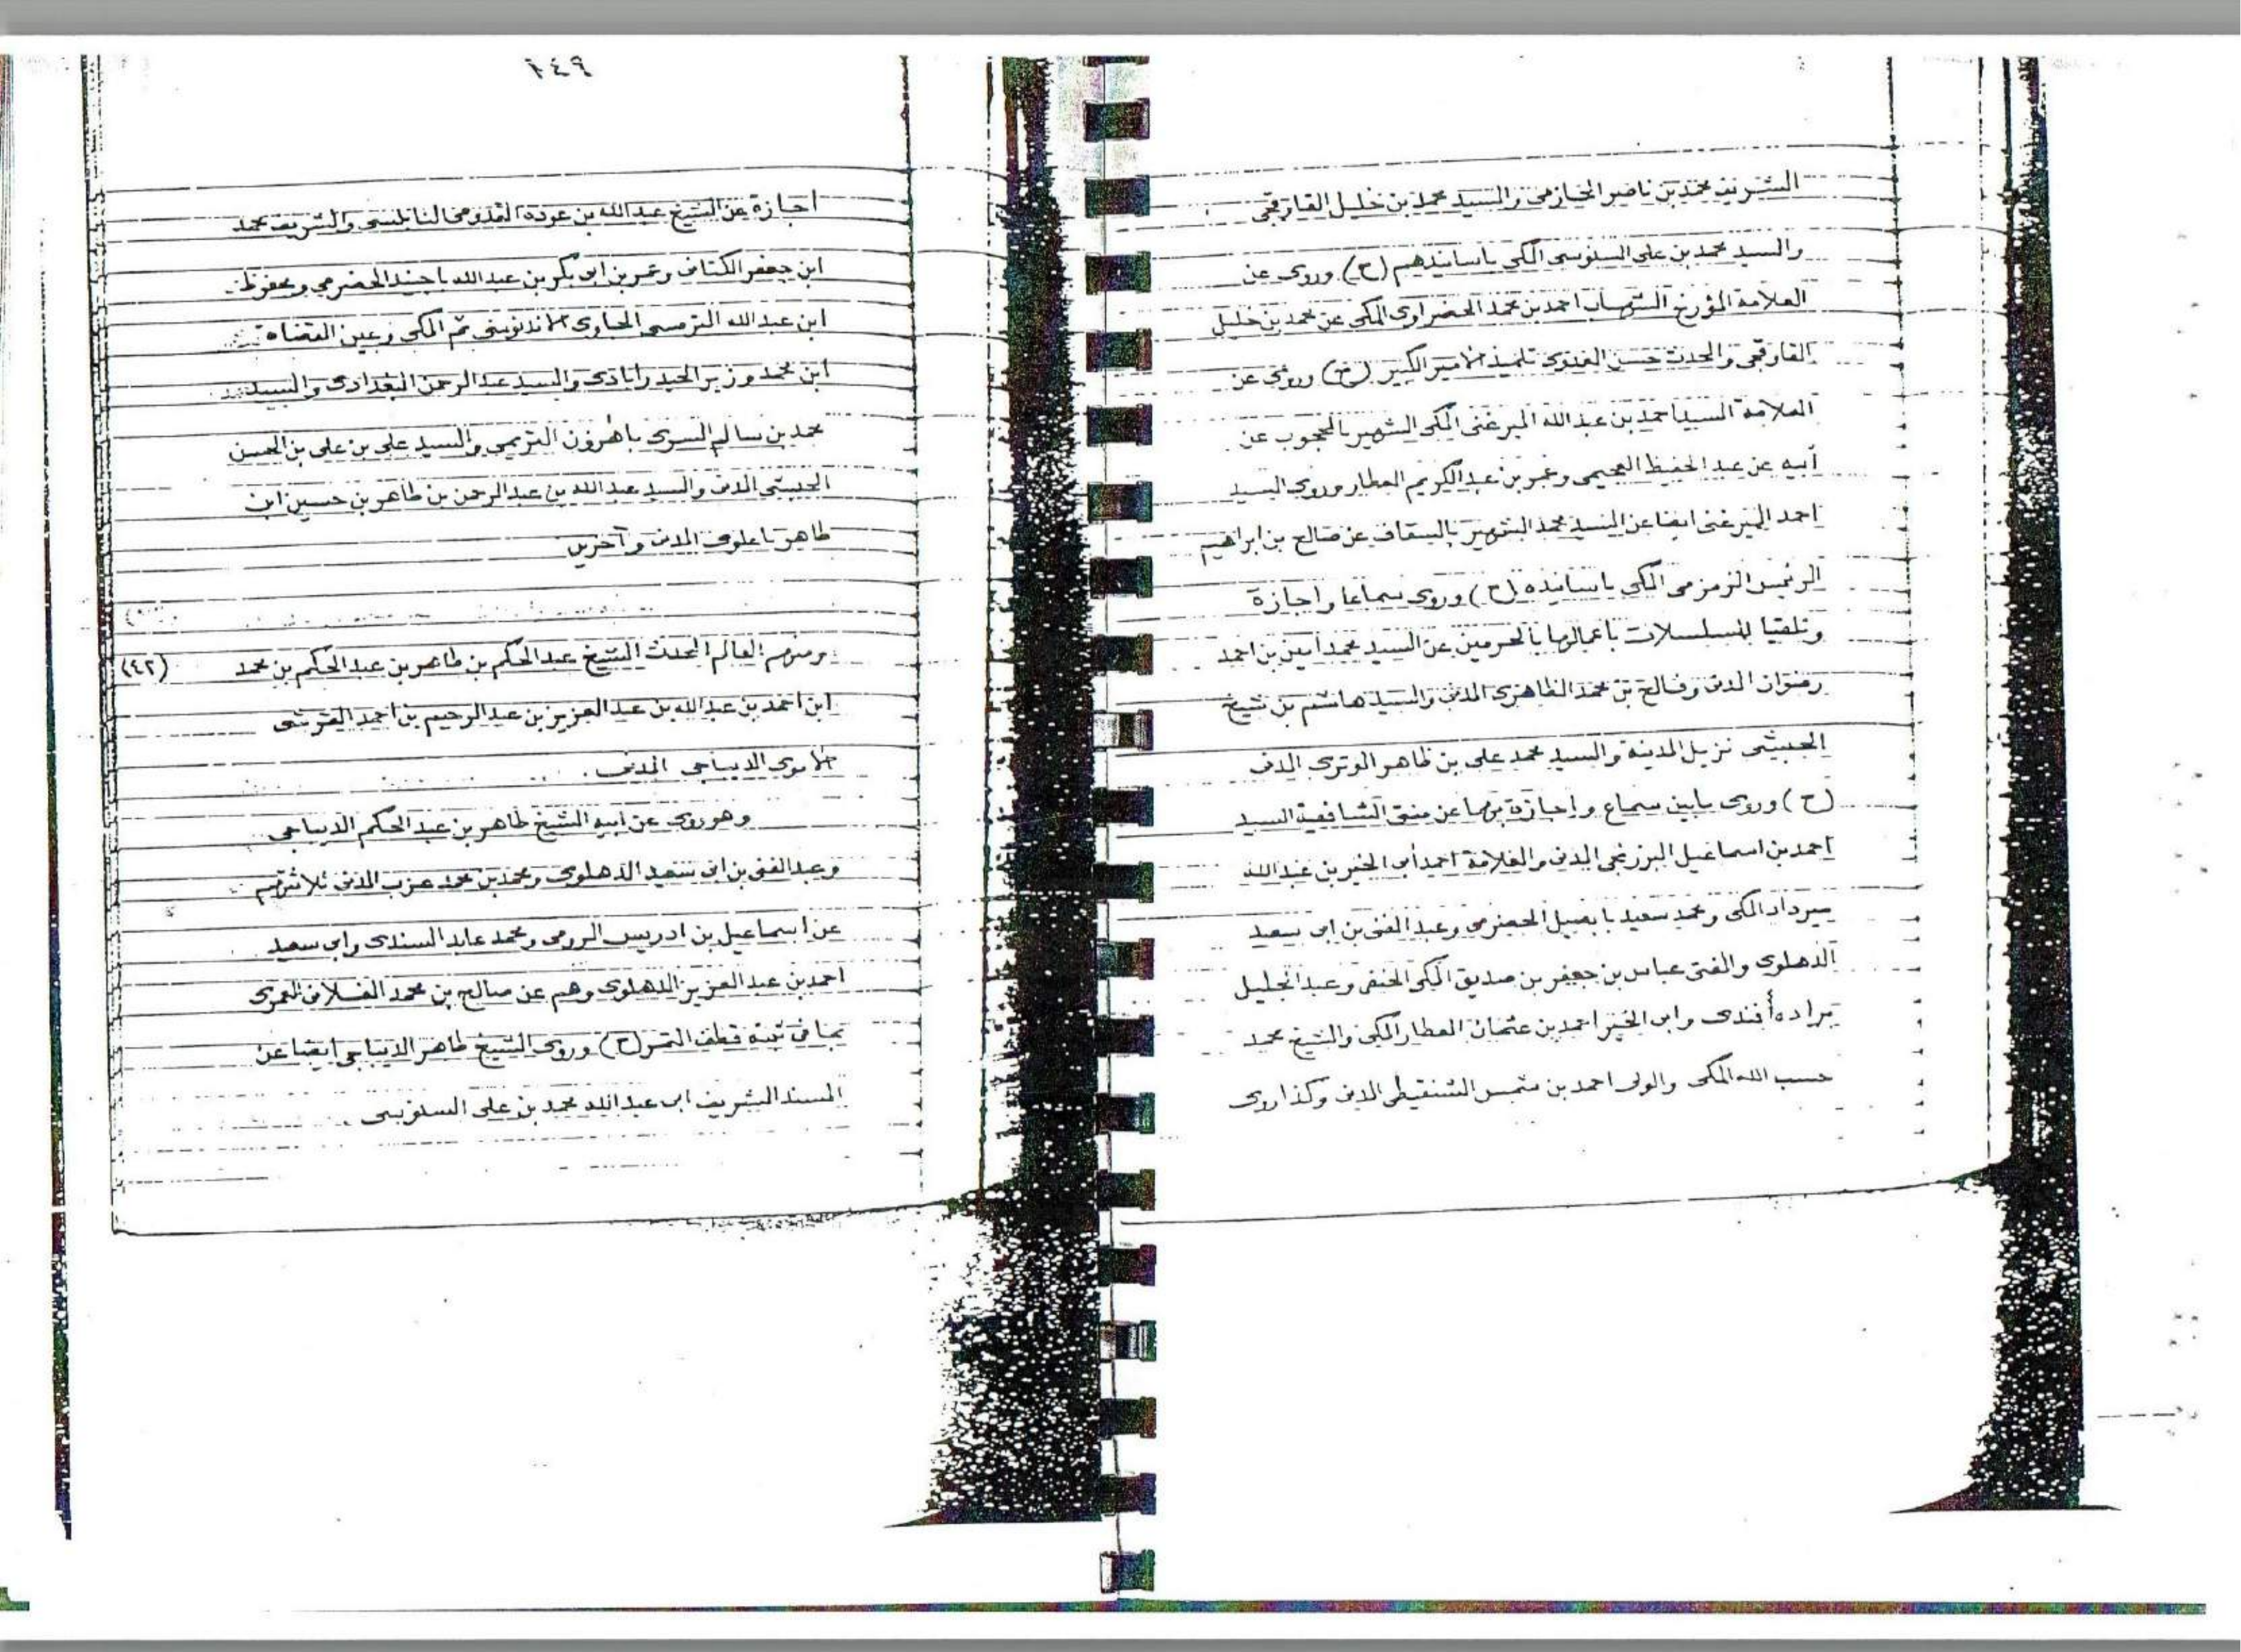 الشريف محمد بن ناصر الحازمى والسيد محمد بن خليل القاوقجى
والسيد محمد بن على السنوسى المكى باسانيدهم (ح) وروى عن
العلامة المؤرخ الشهاب احمد بن محمد الحضراوى المكى عن محمد بن خليل
القاوقجى والمحدث حسن العدوى تلميذ الامير الكبير (ح) وروى عن
العلامة السيد احمد بن عبد الله الميرغنى المكى الشهير بالمحجوب عن
أبيه عن عبد الحفيظ العجيمى وعمر بن عبد الكريم العطار وروى السيد
احمد الميرغنى ايضا عن السيد محمد الشهير بالسقاف عن صالح بن ابراهيم
الرئيس الزمزمى المكى باسانيده (ح) وروى سماعا واجازة
وتلقيا للمسلسلات باعمالها بالحرمين عن السيد محمد أمين بن احمد
رضوان المدنى وفالح بن محمد الظاهرى المدنى والسيد هاشم بن شيخ
الحبشى نزيل المدينة والسيد محمد على بن ظاهر الوترى المدنى
(ح) وروى مابين سماع واجازة بهما عن مفتى الشافعية السيد
احمد بن اسماعيل البرزنجى المدنى والعلامة احمد أبى الخير بن عبد الله
ميرداد المكى ومحمد سعيد بابصيل الحضرمى وعبد الغنى بن ابى سعيد
الدهلوى والمفتى عباس بن جعفر بن صديق المكى الحنفى وعبد الجليل
براده أفندى وابى الخير احمد بن عثمان العطار المكى والشيخ محمد
حسب الله المكى والولى احمد بن شمس الشنقيطى المدنى وكذا روى
١٤٩
اجازة عن الشيخ عبد الله بن عوده القدومى النابلسى والشريف محمد
ابن جعفر الكتانى وعمر بن ابى بكر بن عبد الله باجنيد الحضرمى ومحفوظ
ابن عبد الله الترمسى الجاوى الاندنوسى ثم المكى وعين القضاة
ابن محمد وزير الحيدرابادى والسيد عبد الرحمن البغدادى والسيد
محمد بن سالم السرى باهرون التريمى والسيد على بن على بن الحسن
الحبشى المدنى والسيد عبد الله بن عبد الرحمن بن طاهر بن حسين ابن
طاهر باعلوى المدنى وآخرين
ومنهم العالم المحدث الشيخ عبد الحكم بن طاهر بن عبد الحكم بن محمد (٤٢)
ابن احمد بن عبد الله بن عبد العزيز بن عبد الرحيم بن احمد القرشى
الاموى الديباجى المدنى
وهو روى عن ابيه الشيخ طاهر بن عبد الحكم الديباجى
وعبد الغنى بن ابى سعيد الدهلوى ومحمد بن محمد عزب المدنى ثلاثتهم
عن اسماعيل بن ادريس الرومى ومحمد عابد السندى وابى سعيد
احمد بن عبد العزيز الدهلوى وهم عن صالح بن محمد الفلانى العمرى
بما فى ثبته قطف الثمر (ح) وروى الشيخ طاهر الديباجى ايضا عن
المسند الشريف ابى عبد الله محمد بن على السنوسى